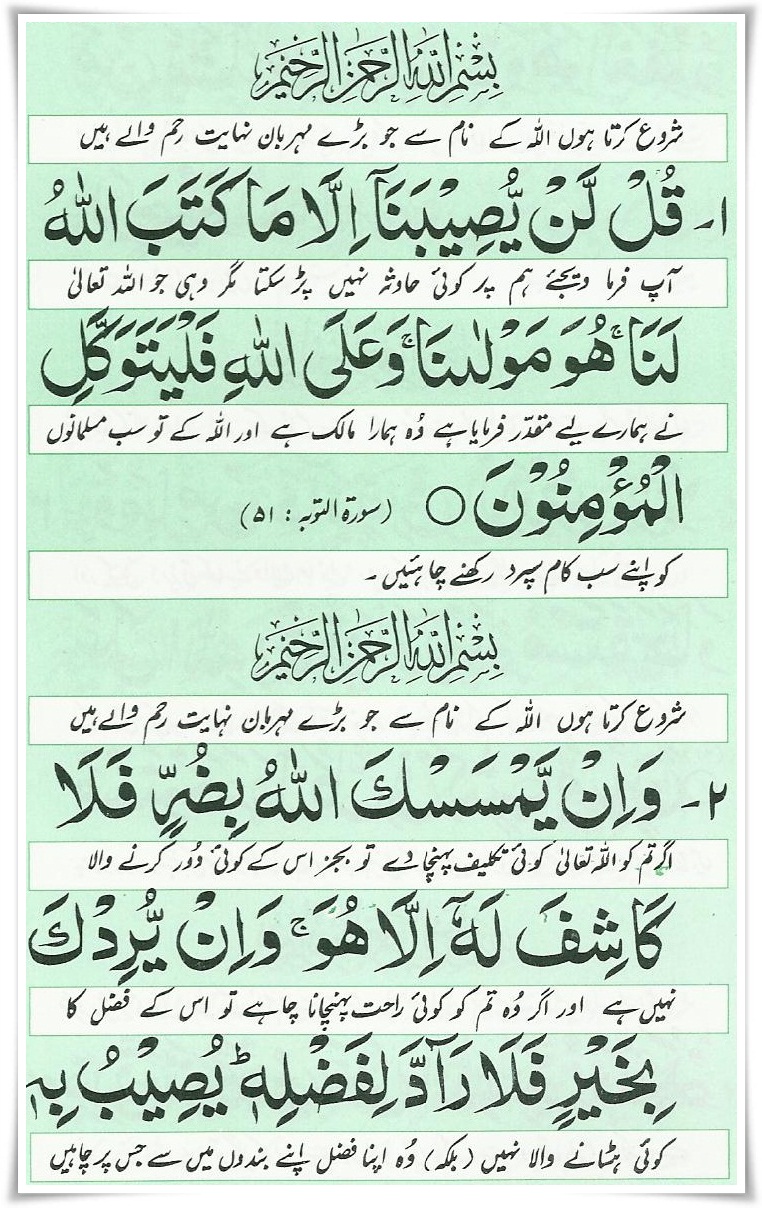 بِسْمِ اللهِ الرَّحْمٰنِ الرَّحِيْمِ
شروع کرتا ہوں اللہ کے نام سے جو بڑے مہربان نہایت رحم والے ہیں
۱۔ قُلْ لَّنْ يُّصِيْبَنَآ اِلَّا مَا كَتَبَ اللهُ
آپ فرما دیجئے ہم پر کوئی حادثہ نہیں پڑ سکتا مگر وہی جو اللہ تعالیٰ
لَنَا ۚ هُوَ مَوْلٰىنَا ۚ وَعَلَى اللهِ فَلْيَتَوَكَّلِ
نے ہمارے لیے مقدّر فرمایا ہے وُہ ہمارا مالک ہے اور اللہ کے تو سب مسلمانوں
الْمُؤْمِنُوْنَ ○ (سورۃ التوبہ : ۵۱)
کو اپنے سب کام سپرد رکھنے چاہئیں ۔
بِسْمِ اللهِ الرَّحْمٰنِ الرَّحِيْمِ
شروع کرتا ہوں اللہ کے نام سے جو بڑے مہربان نہایت رحم والے ہیں
۲۔ وَاِنْ يَّمْسَسْكَ اللهُ بِضُرٍّ فَلَا
اگر تم کو اللہ تعالیٰ کوئی تکلیف پہنچا دے تو بجز اس کے کوئی دُور کرنے والا
كَاشِفَ لَهٗٓ اِلَّا هُوَ ۚ وَاِنْ يُّرِدْكَ
نہیں ہے اور اگر وُہ تم کو کوئی راحت پہنچانا چاہے تو اس کے فضل کا
بِخَيْرٍ فَلَا رَآدَّ لِفَضْلِهٖ ؕ يُصِيْبُ بِهٖ
کوئی ہٹانے والا نہیں (بلکہ) وُہ اپنا فضل اپنے بندوں میں سے جس پر چاہیں